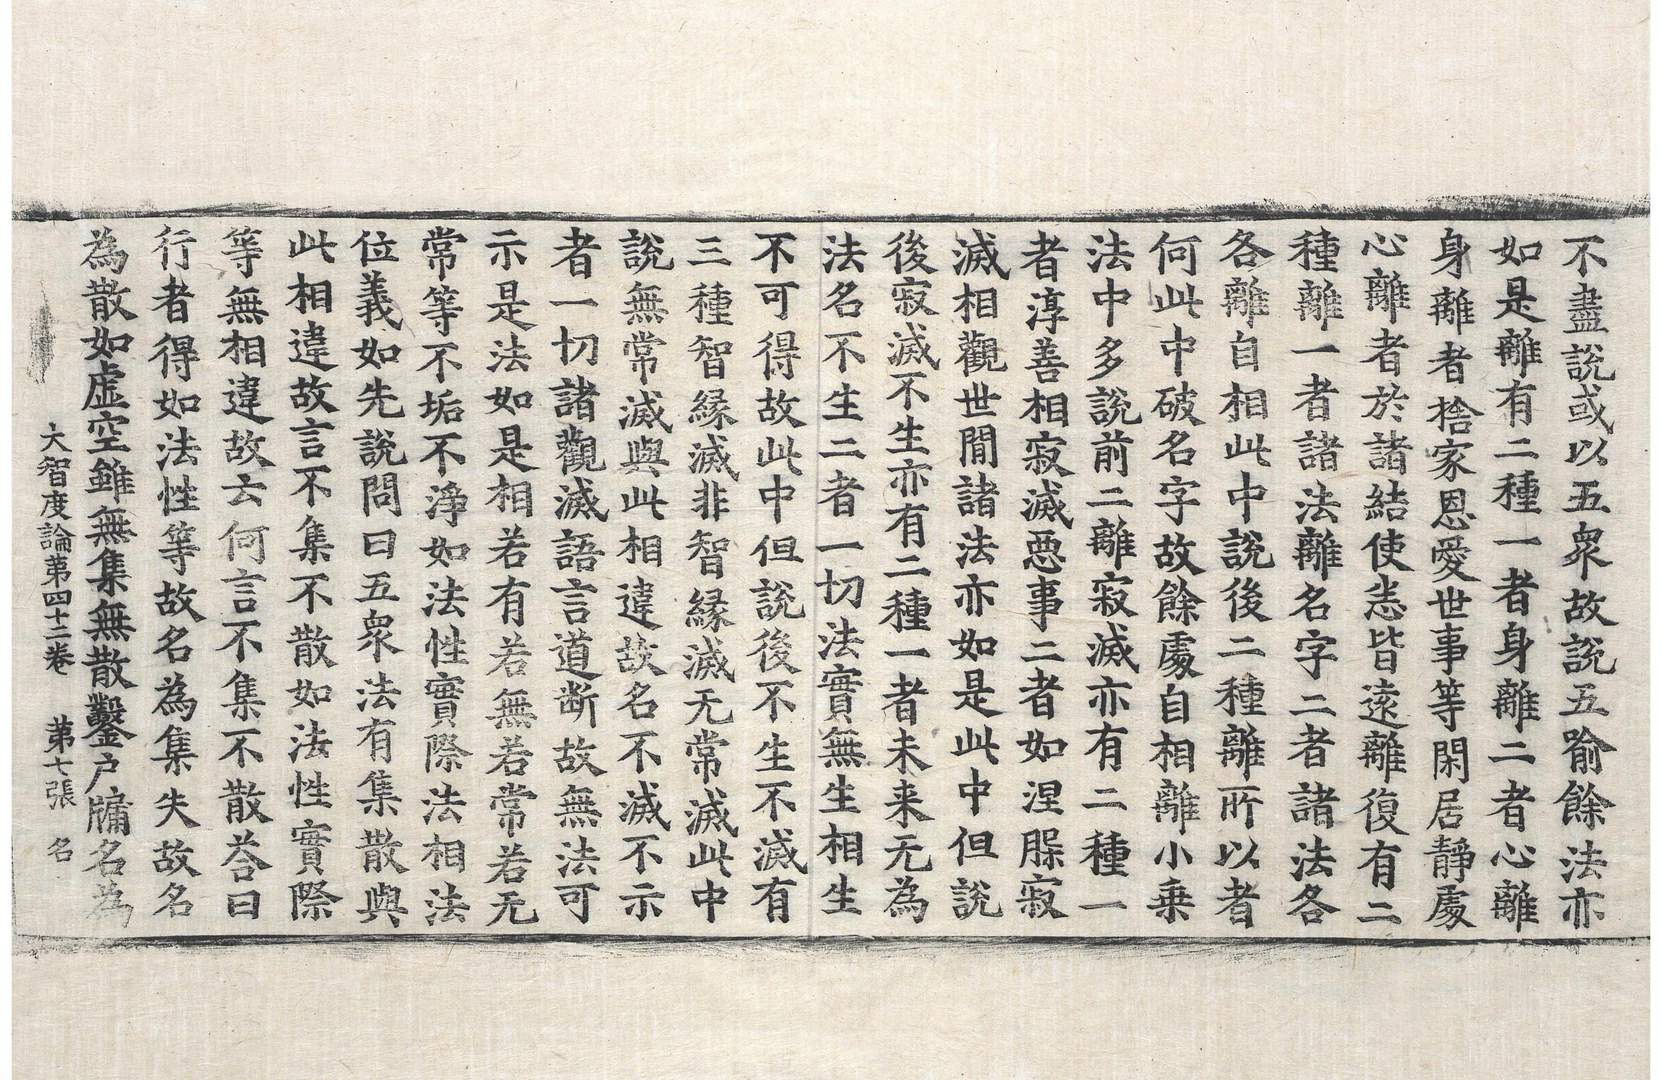 不盡說或以五衆故說五喻餘法亦
如是離有二種一者身離二者心離
身離者捨家恩愛世事等閑居靜處
心離者於諸結使悉皆遠離復有二
種離一者諸法離名字二者諸法各
各離自相此中說後二種離所以者
何此中破名字故餘處自相離小乗
法中多說前二離寂滅亦有二種一
者淳善相寂滅惡事二者如涅槃寂
滅相觀世間諸法亦如是此中但說
後寂滅不生亦有二種一者未来无為
法名不生二者一切法實無生相生
不可得故此中但說後不生不滅有
三種智緣滅非智緣滅无常滅此中
說無常滅與此相違故名不滅不示
者一切諸觀滅語言道断故無法可
示是法如是相若有若無若常若无
常等不垢不淨如法性實際法相法
位義如先說問曰五衆法有集散與
此相違故言不集不散如法性實際
等無相違故云何言不集不散荅曰
行者得如法性等故名為集失故名
為散如虚空雖無集無散鑿戸牖名為
大智度論第四十二卷 第七張 名